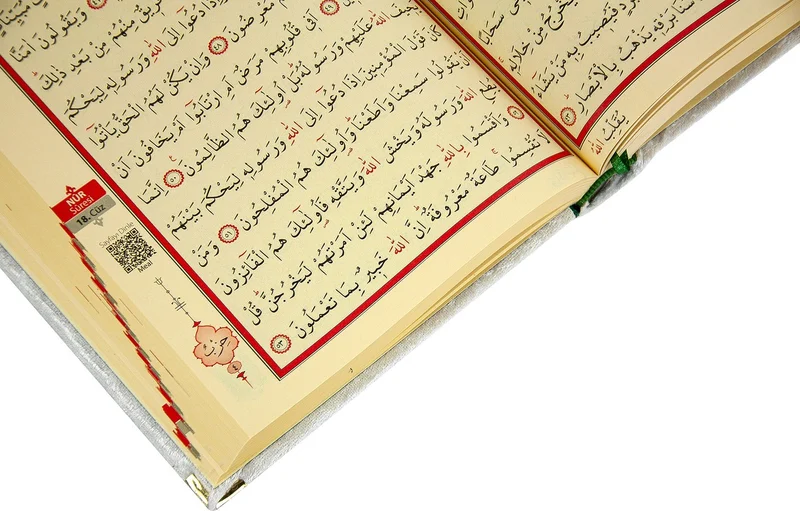 يَخْرُجُ مِنْ خِلَالِهِ
فَيُصِيبُ بِهِ مَنْ يَشَاءُ
سَنَا بَرْقِهِ يَذْهَبُ بِالْاَبْصَارِ ٤٣
يُقَلِّبُ اللّٰهُ
وَيَقُولُونَ اٰمَنَّا
فَرِيقٌ مِنْهُمْ مِنْ بَعْدِ ذٰلِكَ
وَاِذَا دُعُٓوا اِلَى اللّٰهِ وَرَسُولِهِ لِيَحْكُمَ
مُعْرِضُونَ ٤٨ وَاِنْ يَكُنْ لَهُمُ الْحَقُّ يَأْتُٓوا
٤٩ اَفِي قُلُوبِهِمْ مَرَضٌ اَمِ ارْتَابُٓوا اَمْ يَخَافُونَ اَنْ
يَحِيفَ اللّٰهُ عَلَيْهِمْ وَرَسُولُهُ بَلْ اُولٰٓئِكَ هُمُ الظَّالِمُونَ ٥٠ اِنَّمَا
كَانَ قَوْلَ الْمُؤْمِنِينَ اِذَا دُعُٓوا اِلَى اللّٰهِ وَرَسُولِهِ لِيَحْكُمَ بَيْنَهُمْ
اَنْ يَقُولُوا سَمِعْنَا وَاَطَعْنَا وَاُولٰٓئِكَ هُمُ الْمُفْلِحُونَ ٥١ وَمَنْ
يُطِعِ اللّٰهَ وَرَسُولَهُ وَيَخْشَ اللّٰهَ وَيَتَّقْهِ فَاُولٰٓئِكَ هُمُ الْفَٓائِزُونَ
٥٢ وَاَقْسَمُوا بِاللّٰهِ جَهْدَ اَيْمَانِهِمْ لَئِنْ اَمَرْتَهُمْ لَيَخْرُجُنَّ قُلْ
لَا تُقْسِمُوا طَاعَةٌ مَعْرُوفَةٌ اِنَّ اللّٰهَ خَبِيرٌ بِمَا تَعْمَلُونَ ٥٣
NÛR
Sûresi
18. Cüz
Sayfayı Dinle
Meal
حزب